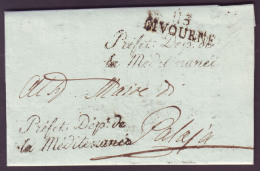 113
LIVOURNE
Préfet. Dép.t de
la Méditerranée
Al Sig. Maire di
Préfet. Dép.t de
la Méditerranée
Palaja